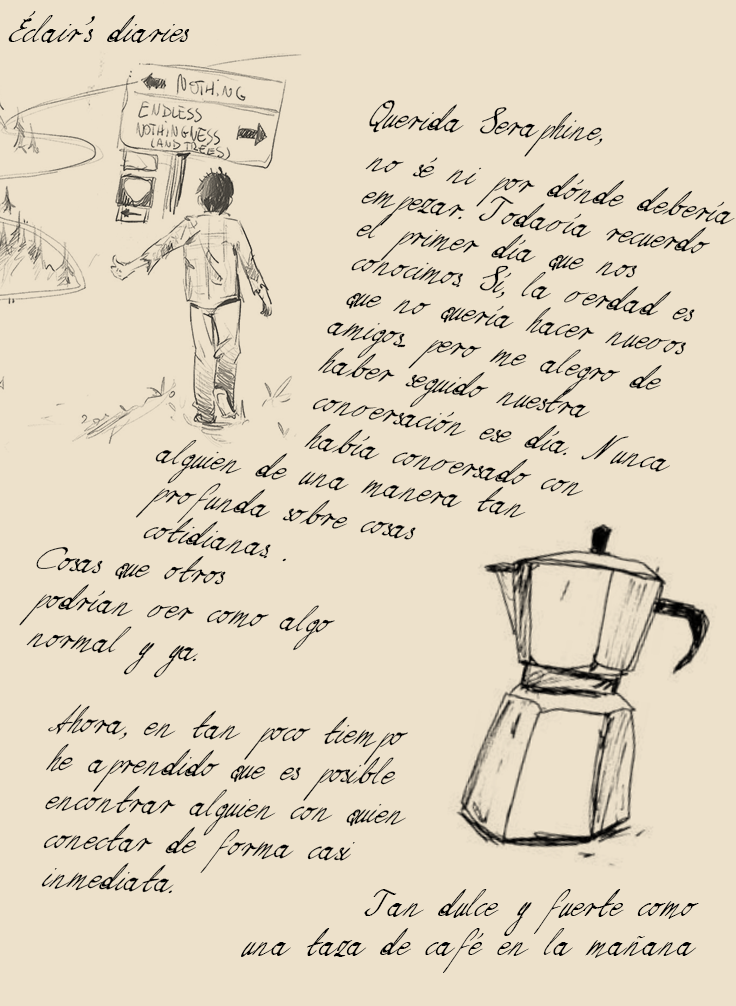 Éclair's diaries
NOTHING
ENDLESS
NOTHINGNESS
(AND TREES)
Querida Seraphine,
no sé ni por dónde debería
empezar. Todavía recuerdo
el primer día que nos
conocimos. Sí, la verdad es
que no quería hacer nuevos
amigos, pero me alegro de
haber seguido nuestra
conversación ese día. Nunca
había conversado con
alguien de una manera tan
profunda sobre cosas
cotidianas.
Cosas que otros
podrían ver como algo
normal y ya.
Ahora, en tan poco tiempo
he aprendido que es posible
encontrar alguien con quien
conectar de forma casi
inmediata.
Tan dulce y fuerte como
una taza de café en la mañana